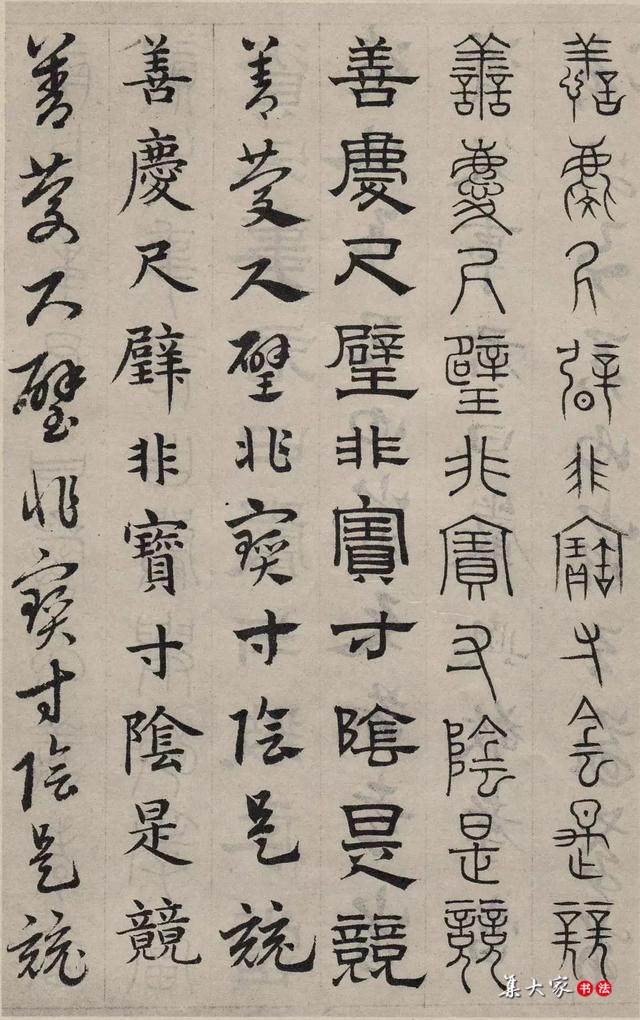 善慶尺璧非寶寸陰是競
善慶尺璧非寶寸陰是競
善慶尺璧非寶寸陰是競
善慶尺璧非寶寸陰是競
善慶尺璧非寶寸陰是競
善慶尺璧非寶寸陰是競
集大家书法